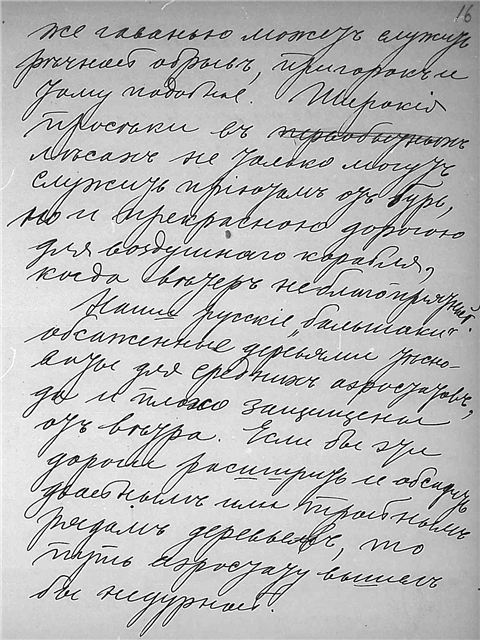 16
же гаванью можетъ служить
рѣчной обрывъ, пригорокъ и
тому подобное. Широкія
просѣки въ первобытныхъ
лѣсахъ не только могутъ
служить пріютомъ отъ бурь,
но и прекрасною дорогою
для воздушнаго корабля,
когда вѣтеръ неблагопріятный.
Наши русскіе „большаки“
обсаженные деревьями тѣсно-
ваты для среднихъ аэростатовъ,
да и плохо защищены
отъ вѣтра. Если бы эти
дороги расширить и обсадить
двойнымъ или тройнымъ
рядомъ деревьевъ, то
путь аэростату вышелъ
бы недурной.